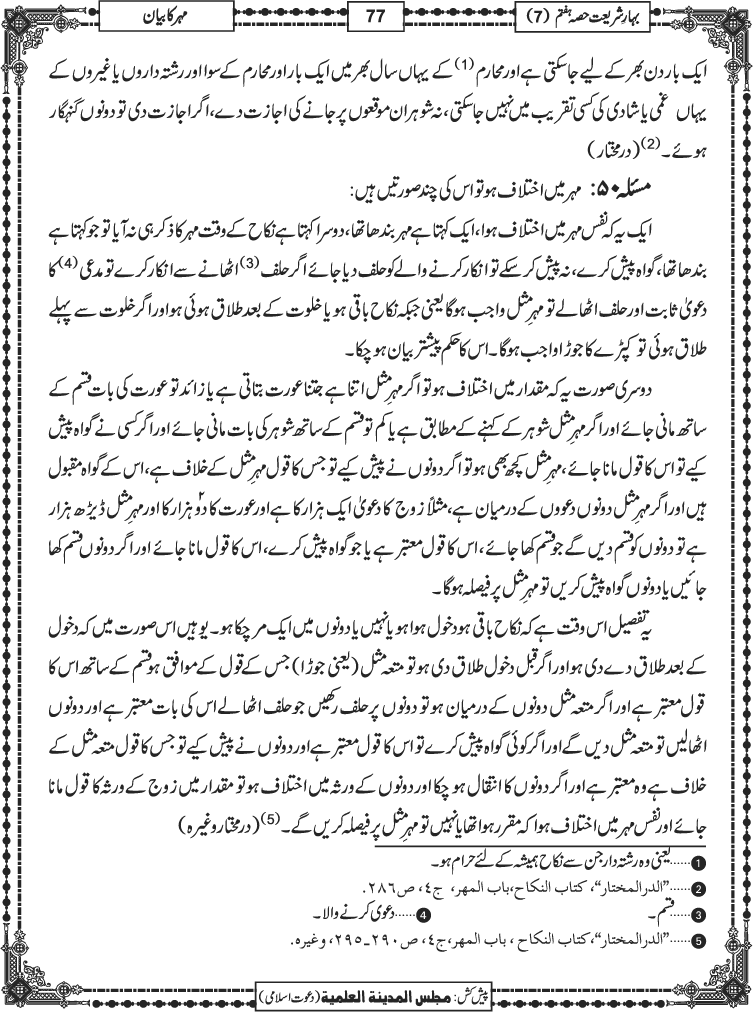 بہارِ شریعت حصہ ہفتم (7)
77
مہر کا بیان
ایک بار دن بھر کے لیے جا سکتی ہے اور محارم (1) کے یہاں سال بھر میں ایک بار اور محارم کے سوا اور رشتہ داروں یا غیروں کے
یہاں غمی یا شادی کی کسی تقریب میں نہیں جا سکتی، نہ شوہر ان موقعوں پر جانے کی اجازت دے، اگر اجازت دی تو دونوں گنہگار
ہوئے۔ (2) (درمختار)
مسئلہ ۵۰: مہر میں اختلاف ہو تو اس کی چند صورتیں ہیں:
ایک یہ کہ نفس مہر میں اختلاف ہوا، ایک کہتا ہے مہر بندھا تھا، دوسرا کہتا ہے نکاح کے وقت مہر کا ذکر ہی نہ آیا تو جو کہتا ہے
بندھا تھا، گواہ پیش کرے، نہ پیش کر سکے تو انکار کرنے والے کو حلف دیا جائے اگر حلف (3) اٹھانے سے انکار کرے تو مدعی (4) کا
دعویٰ ثابت اور حلف اٹھا لے تو مہرِ مثل واجب ہوگا یعنی جبکہ نکاح باقی ہو یا خلوت کے بعد طلاق ہوئی ہو اور اگر خلوت سے پہلے
طلاق ہوئی تو کپڑے کا جوڑا واجب ہوگا۔ اس کا حکم پیشتر بیان ہو چکا۔
دوسری صورت یہ کہ مقدار میں اختلاف ہو تو اگر مہرِ مثل اتنا ہے جتنا عورت بتاتی ہے یا زائد تو عورت کی بات قسم کے
ساتھ مانی جائے اور اگر مہرِ مثل شوہر کے کہنے کے مطابق ہے یا کم تو قسم کے ساتھ شوہر کی بات مانی جائے اور اگر کسی نے گواہ پیش
کیے تو اس کا قول مانا جائے، مہرِ مثل کچھ بھی ہو تو اگر دونوں نے پیش کیے تو جس کا قول مہرِ مثل کے خلاف ہے، اس کے گواہ مقبول
ہیں اور اگر مہرِ مثل دونوں دعووں کے درمیان ہے، مثلاً زوج کا دعویٰ ایک ہزار کا ہے اور عورت کا دو۲ ہزار کا اور مہرِ مثل ڈیڑھ ہزار
ہے تو دونوں کو قسم دیں گے جو قسم کھا جائے، اس کا قول معتبر ہے یا جو گواہ پیش کرے، اس کا قول مانا جائے اور اگر دونوں قسم کھا
جائیں یا دونوں گواہ پیش کریں تو مہرِ مثل پر فیصلہ ہوگا۔
یہ تفصیل اس وقت ہے کہ نکاح باقی ہو دخول ہوا ہو یا نہیں یا دونوں میں ایک مر چکا ہو۔ یوہیں اس صورت میں کہ دخول
کے بعد طلاق دے دی ہو اور اگر قبل دخول طلاق دی ہو تو متعہ مثل (یعنی جوڑا) جس کے قول کے موافق ہو قسم کے ساتھ اس کا
قول معتبر ہے اور اگر متعہ مثل دونوں کے درمیان ہو تو دونوں پر حلف رکھیں جو حلف اٹھا لے اس کی بات معتبر ہے اور دونوں
اٹھا لیں تو متعہ مثل دیں گے اور اگر کوئی گواہ پیش کرے تو اس کا قول معتبر ہے اور دونوں نے پیش کیے تو جس کا قول متعہ مثل کے
خلاف ہے وہ معتبر ہے اور اگر دونوں کا انتقال ہو چکا اور دونوں کے ورثہ میں اختلاف ہو تو مقدار میں زوج کے ورثہ کا قول مانا
جائے اور نفس مہر میں اختلاف ہوا کہ مقرر ہوا تھا یا نہیں تو مہرِ مثل پر فیصلہ کریں گے۔ (5) (درمختار وغیرہ)
1 ......یعنی وہ رشتہ دار جن سے نکاح ہمیشہ کے لئے حرام ہو۔
2 ......”الدرالمختار“، کتاب النکاح،باب المهر، ج٤، ص٢٨٦.
3 ......قسم۔ 4 ......دعوٰی کرنے والا۔
5 ......”الدرالمختار“، کتاب النکاح ، باب المهر،ج٤، ص٢٩٠ـ٢٩٥، وغیره.
پیش کش: مجلس المدینة العلمیة (دعوت اسلامی)